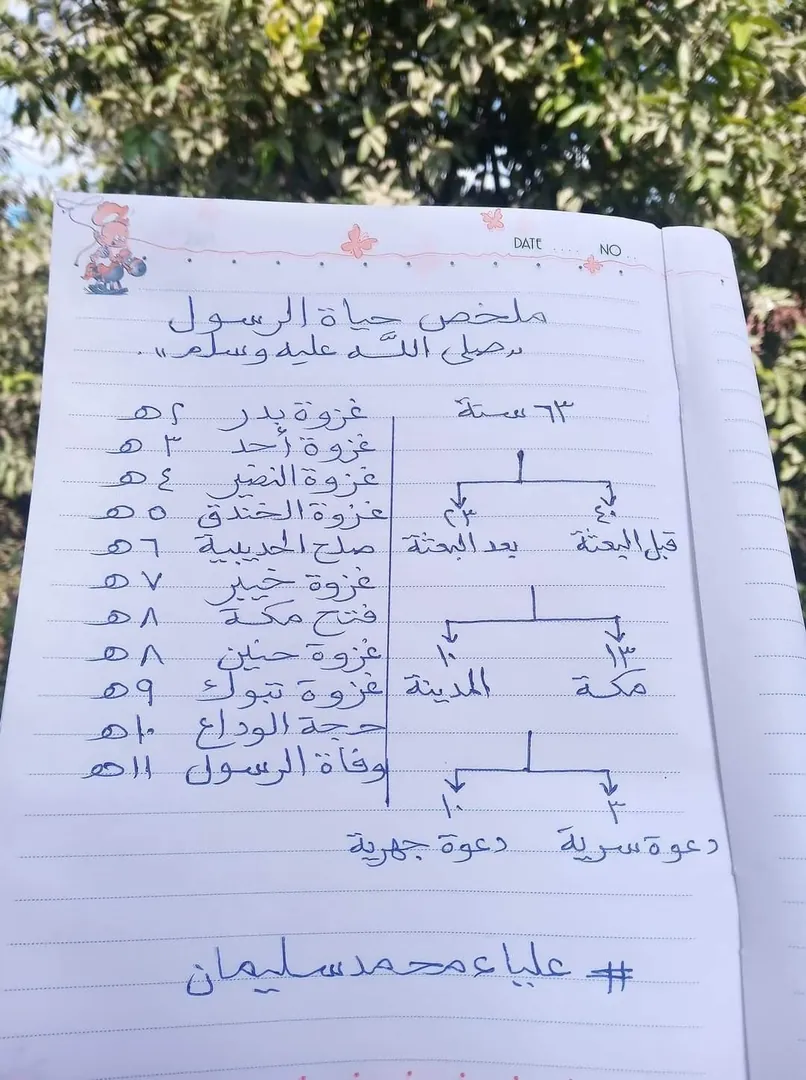 DATE .... NO ..
ملخص حياة الرسول
"صلى الله عليه وسلم".
٦٣ سنة
٤٠ ٢٣
قبل البعثة بعد البعثة
١٣ ١٠
مكة المدينة
٣ ١٠
دعوة سرية دعوة جهرية
غزوة بدر ٢ هـ
غزوة أحد ٣ هـ
غزوة النضير ٤ هـ
غزوة الخندق ٥ هـ
صلح الحديبية ٦ هـ
غزوة خيبر ٧ هـ
فتح مكة ٨ هـ
غزوة حنين ٨ هـ
غزوة تبوك ٩ هـ
حجة الوداع ١٠ هـ
وفاة الرسول ١١ هـ
# علياء محمد سليمان